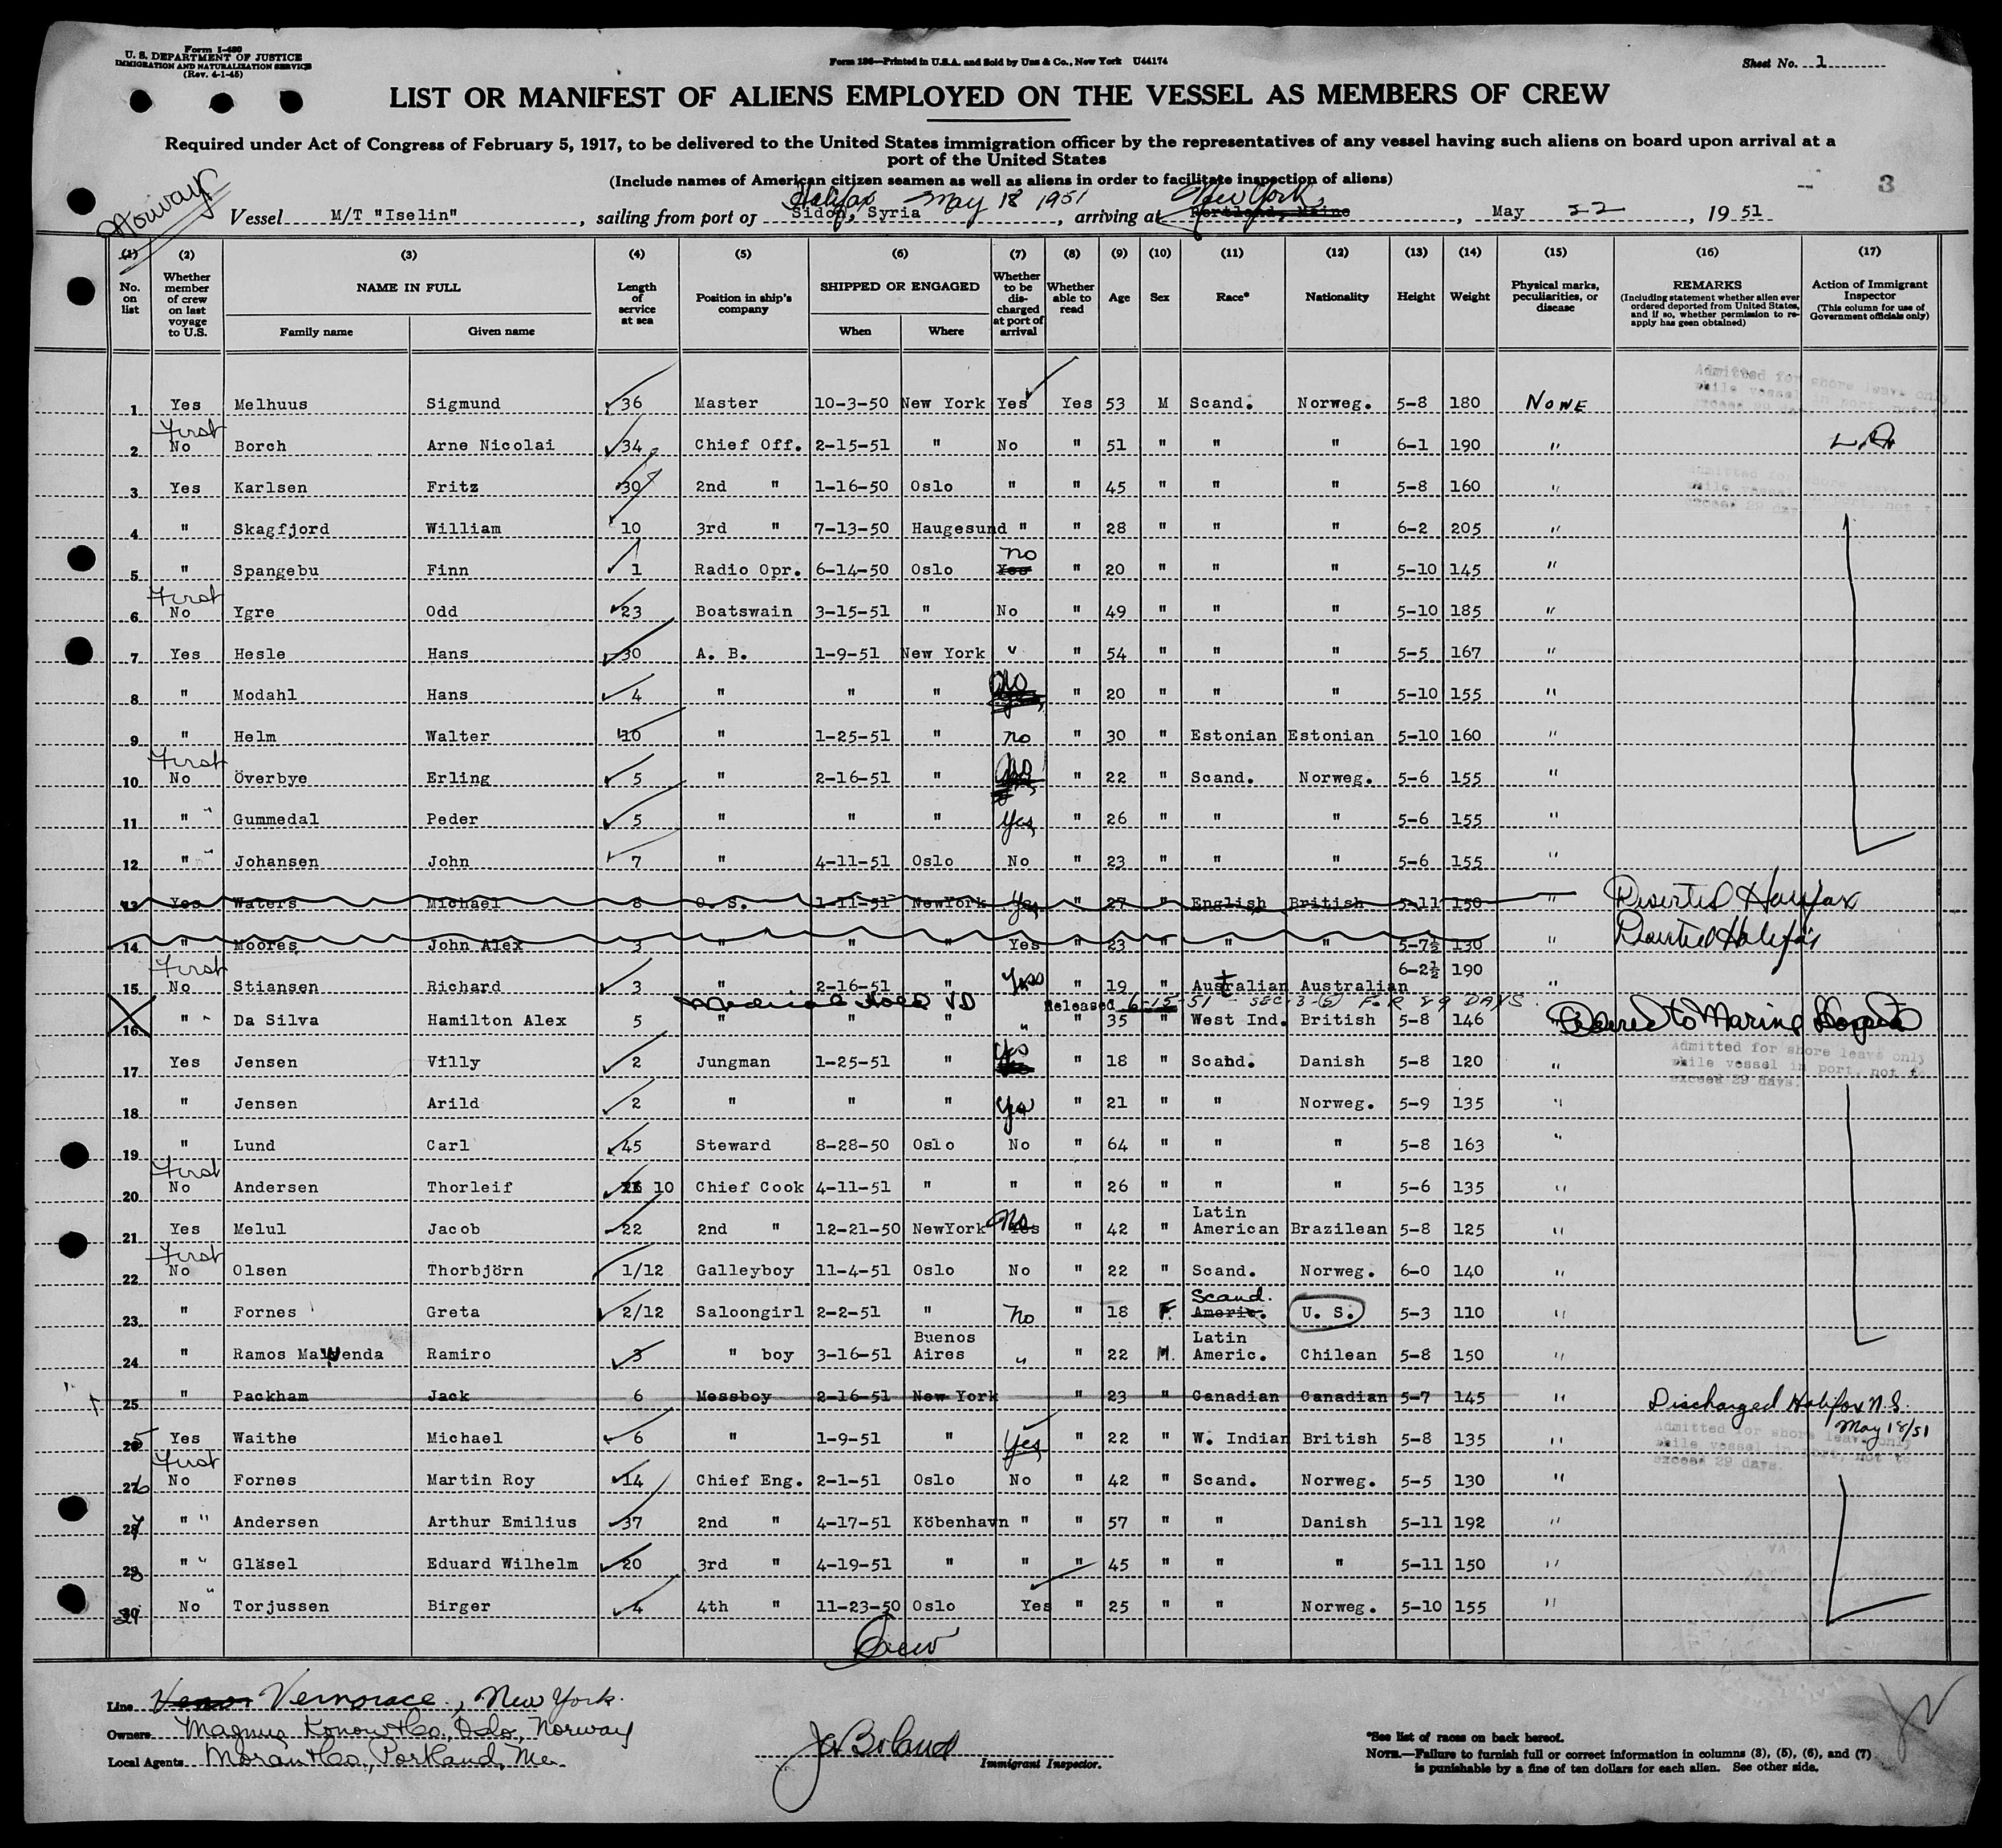 Form I-480
U. S. DEPARTMENT OF JUSTICE
IMMIGRATION AND NATURALIZATION SERVICE
(Rev. 4-1-45)
Form 186—Printed in U.S.A. and Sold by Unz & Co., New York U44174
Sheet No. 1
LIST OR MANIFEST OF ALIENS EMPLOYED ON THE VESSEL AS MEMBERS OF CREW
Required under Act of Congress of February 5, 1917, to be delivered to the United States immigration officer by the representatives of any vessel having such aliens on board upon arrival at a
port of the United States
(Include names of American citizen seamen as well as aliens in order to facilitate inspection of aliens)
3
Norway
Halifax May 18 1951 New York,
Vessel M/T "Iselin", sailing from port of Sidon, Syria, arriving at Portland, Maine, May 22, 1951
(1) (2) (3) (4) (5) (6) (7) (8) (9) (10) (11) (12) (13) (14) (15) (16) (17)
No. on list
Whether member of crew on last voyage to U.S.
NAME IN FULL
Family name Given name
Length of service at sea
Position in ship's company
SHIPPED OR ENGAGED
When Where
Whether to be discharged at port of arrival
Whether able to read
Age
Sex
Race*
Nationality
Height
Weight
Physical marks, peculiarities, or disease
REMARKS
(Including statement whether alien ever ordered deported from United States, and if so, whether permission to reapply has been obtained)
Action of Immigrant Inspector
(This column for use of Government officials only)
Admitted for shore leave only
while vessel in port, not to
exceed 29 days.
1 Yes Melhuus Sigmund 36 Master 10-3-50 New York Yes Yes 53 M Scand. Norweg. 5-8 180 NONE
First
2 No Borch Arne Nicolai 34 Chief Off. 2-15-51 " No " 51 " " " 6-1 190 "
Admitted for shore leave
while vessel in port, not t
exceed 29 day
3 Yes Karlsen Fritz 30 2nd " 1-16-50 Oslo " " 45 " " " 5-8 160 "
4 " Skagfjord William 10 3rd " 7-13-50 Haugesund " " 28 " " " 6-2 205 "
no
5 " Spangebu Finn 1 Radio Opr. 6-14-50 Oslo Yes " 20 " " " 5-10 145 "
First
6 No Ygre Odd 23 Boatswain 3-15-51 " No " 49 " " " 5-10 185 "
7 Yes Hesle Hans 30 A. B. 1-9-51 New York " " 54 " " " 5-5 167 "
8 " Modahl Hans 4 " " " No " 20 " " " 5-10 155 "
9 " Helm Walter 10 " 1-25-51 " no " 30 " Estonian Estonian 5-10 160 "
First
10 No Överbye Erling 5 " 2-16-51 " No " 22 " Scand. Norweg. 5-6 155 "
11 " " Gummedal Peder 5 " " " Yes " 26 " " " 5-6 155 "
12 " " Johansen John 7 " 4-11-51 Oslo No " 23 " " " 5-6 155 "
13 Yes Waters Michael 8 O. S. 1-11-51 NewYork Yes " 27 " English British 5-11 150 " Deserted Halifax
14 " Moores John Alex 3 " " " Yes " 23 " " " 5-7½ 130 " Deserted Halifax
First
15 No Stiansen Richard 3 " 2-16-51 " Yes " 19 " Australian Australian 6-2½ 190 "
Medical Hold VD Released 6-15-51 - SEC-3-(5) F.R 29 DAYS.
16 " " Da Silva Hamilton Alex 5 " " " " " 35 " West Ind. British 5-8 146 to Marine Hospital
Admitted for shore leave only
while vessel in port, not to
exceed 29 days.
17 Yes Jensen Villy 2 Jungman 1-25-51 " Yes " 18 " Scand. Danish 5-8 120 "
18 " Jensen Arild 2 " " " Yes " 21 " " Norweg. 5-9 135 "
19 " Lund Carl 45 Steward 8-28-50 Oslo No " 64 " " " 5-8 163 "
First
20 No Andersen Thorleif 10 Chief Cook 4-11-51 " " " 26 " " " 5-6 135 "
21 Yes Melul Jacob 22 2nd " 12-21-50 NewYork No Yes " 42 " Latin American Brazilean 5-8 125 "
First
22 No Olsen Thorbjörn 1/12 Galleyboy 11-4-51 Oslo No " 22 " Scand. Norweg. 6-0 140 "
Scand.
23 " Fornes Greta 2/12 Saloongirl 2-2-51 " No " 18 F. Americ. U. S. 5-3 110 "
24 " Ramos Ramiro 3 " boy 3-16-51 Buenos Aires " " 22 M. Latin Americ. Chilean 5-8 150 "
25 " Packham Jack 6 Messboy 2-16-51 New York " 23 " Canadian Canadian 5-7 145 " Discharged Halifax N.S.
May 18/51
Admitted for shore leave only
while vessel in port, not to
exceed 29 days.
26 5 Yes Waithe Michael 6 " 1-9-51 " Yes " 22 " W. Indian British 5-8 135 "
First
27 6 No Fornes Martin Roy 14 Chief Eng. 2-1-51 Oslo No " 42 " Scand. Norweg. 5-5 130 "
28 7 " " Andersen Arthur Emilius 37 2nd " 4-17-51 Köbenhavn " " 57 " " Danish 5-11 192 "
29 8 " " Gläsel Eduard Wilhelm 20 3rd " 4-19-51 " " " 45 " " " 5-11 150 "
30 29 No " Torjussen Birger 4 4th " 11-23-50 Oslo Yes " 25 " " Norweg. 5-10 155 "
Crew
Line Vernorace., New York.
Owners Magnus Konow & Co., Oslo, Norway
Local Agents Moran & Co., Portland, Me.
Ja Boland
Immigrant Inspector.
*See list of races on back hereof.
NOTE.—Failure to furnish full or correct information in columns (3), (5), (6), and (7)
is punishable by a fine of ten dollars for each alien. See other side.